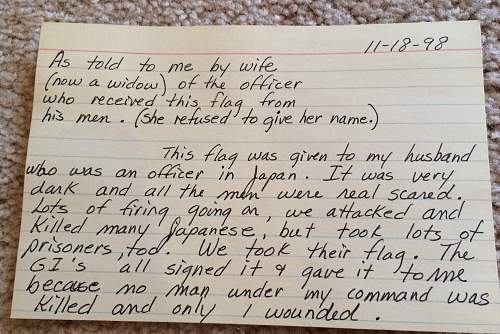 11-18-98
As told to me by wife
(now a widow) of the officer
who received this flag from
his men. (She refused to give her name.)
This flag was given to my husband
who was an officer in Japan. It was very
dark and all the men were real scared.
Lots of firing going on, we attacked and
Killed many Japanese, but took lots of
prisoners, too. We took their flag. The
GI's all signed it & gave it to me
because no man under my command was
Killed and only 1 wounded.